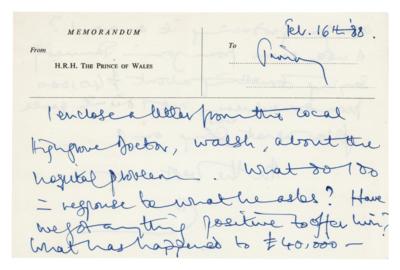 MEMORANDUM
Feb. 16th '88.
From
To
H.R.H. THE PRINCE OF WALES
I enclose a letter from the local
Highgrove Doctor, Walsh, about the
hospital problem.. What do I do
= response to what he asks? Have
we got anything positive to offer him?
What has happened to £40,000 —